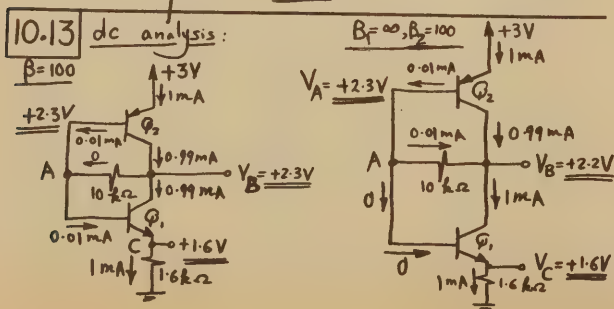 10.13 dc analysis:
β=100
+3V
1mA
+2.3V
Q2
0.01mA
0
A
0.99mA
10kΩ
VB=+2.3V
0.99mA
0.01mA
Q1
C
+1.6V
1mA
1.6kΩ
β1=∞, β2=100
+3V
1mA
0.01mA
VA=+2.3V
Q2
0.01mA
0.99mA
A
10kΩ
VB=+2.2V
0
1mA
0
Q1
VC=+1.6V
1mA
1.6kΩ